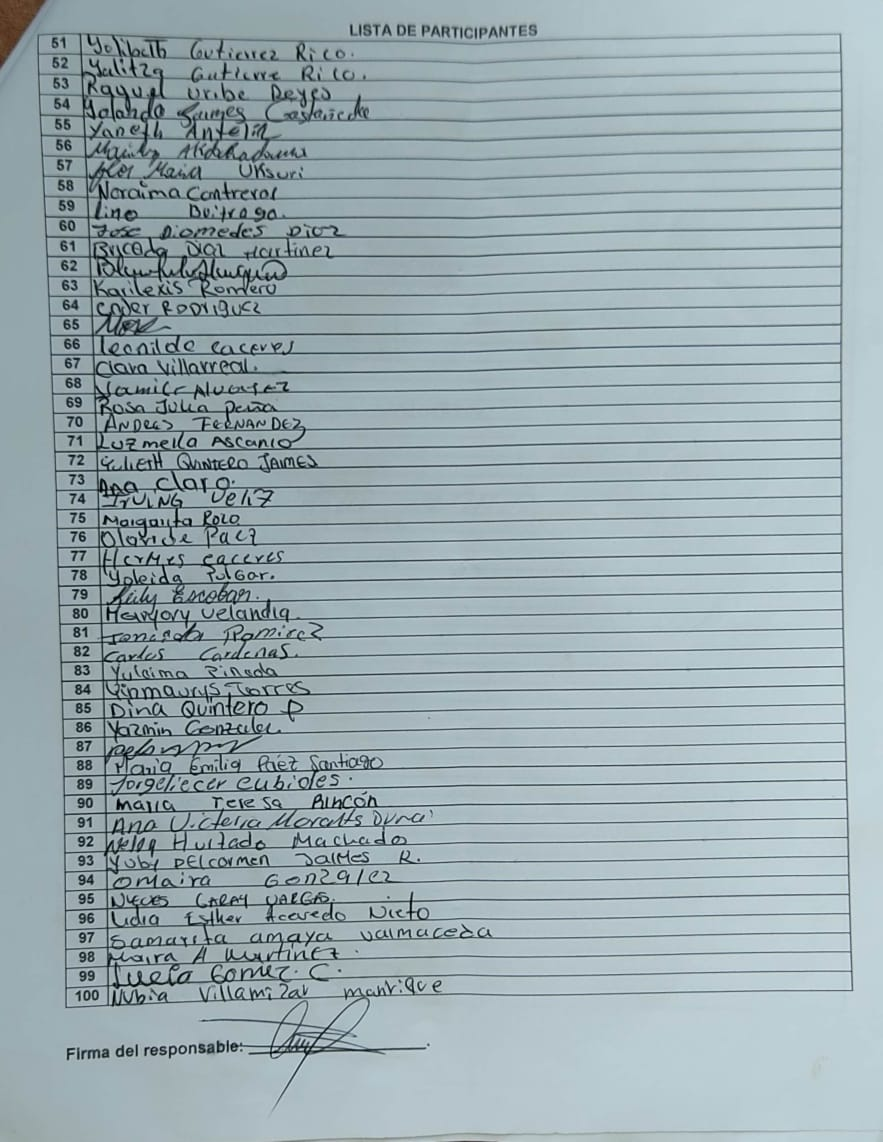 LISTA DE PARTICIPANTES
51 Yolibeth Gutierrez Rico.
52 Yalitza Gutierre Rico.
53 Raquel Uribe Reyes
54 Yolanda Jaimes Castañeda
55 Yaneth Antelin
56
57 Flor Maria
58 Noraima Contreras
59 Lino Buitrago.
60 Jose Diomedes Diaz
61 Diaz Martinez
62
63 Karilexis Romero
64 Ender RODriguez
65
66 Leonilde caceres
67 Clara Villarreal.
68 Yamile Alvarez
69 Rosa Julia Peña
70 ANDRES FERNANDEZ
71 Luzmella Ascanio
72 YULIETH QUINTERO JAIMES
73 Ana Claro.
74 IRVING Veliz
75 Margarita Rozo
76 Olaride Paez
77 Hermes caceres
78 Yoleida Pulgar.
79 Escobar.
80 Maryory Velandia
81 Ramirez
82 Carlos Cardenas.
83 Yuleima Pineda
84 Yinmaurys Torres
85 Dina Quintero P
86 Yazmin Gonzalez.
87
88 Maria Emilia Páez Santiago
89 Jorgeliecer eubides.
90 Maria Teresa Rincón
91 Ana Victoria Morales
92 Nelly Hurtado Machado
93 Yuby DELcarmen JaiMes R.
94 Omaira Gonzalez
95 Nieves GARAY VARGAS.
96 Lidia Esther Acevedo Nieto
97 Samarita amaya valmaceda
98 Maira A Martinez.
99 Gomez. C.
100 Nubia Villamizar manrique
Firma del responsable: